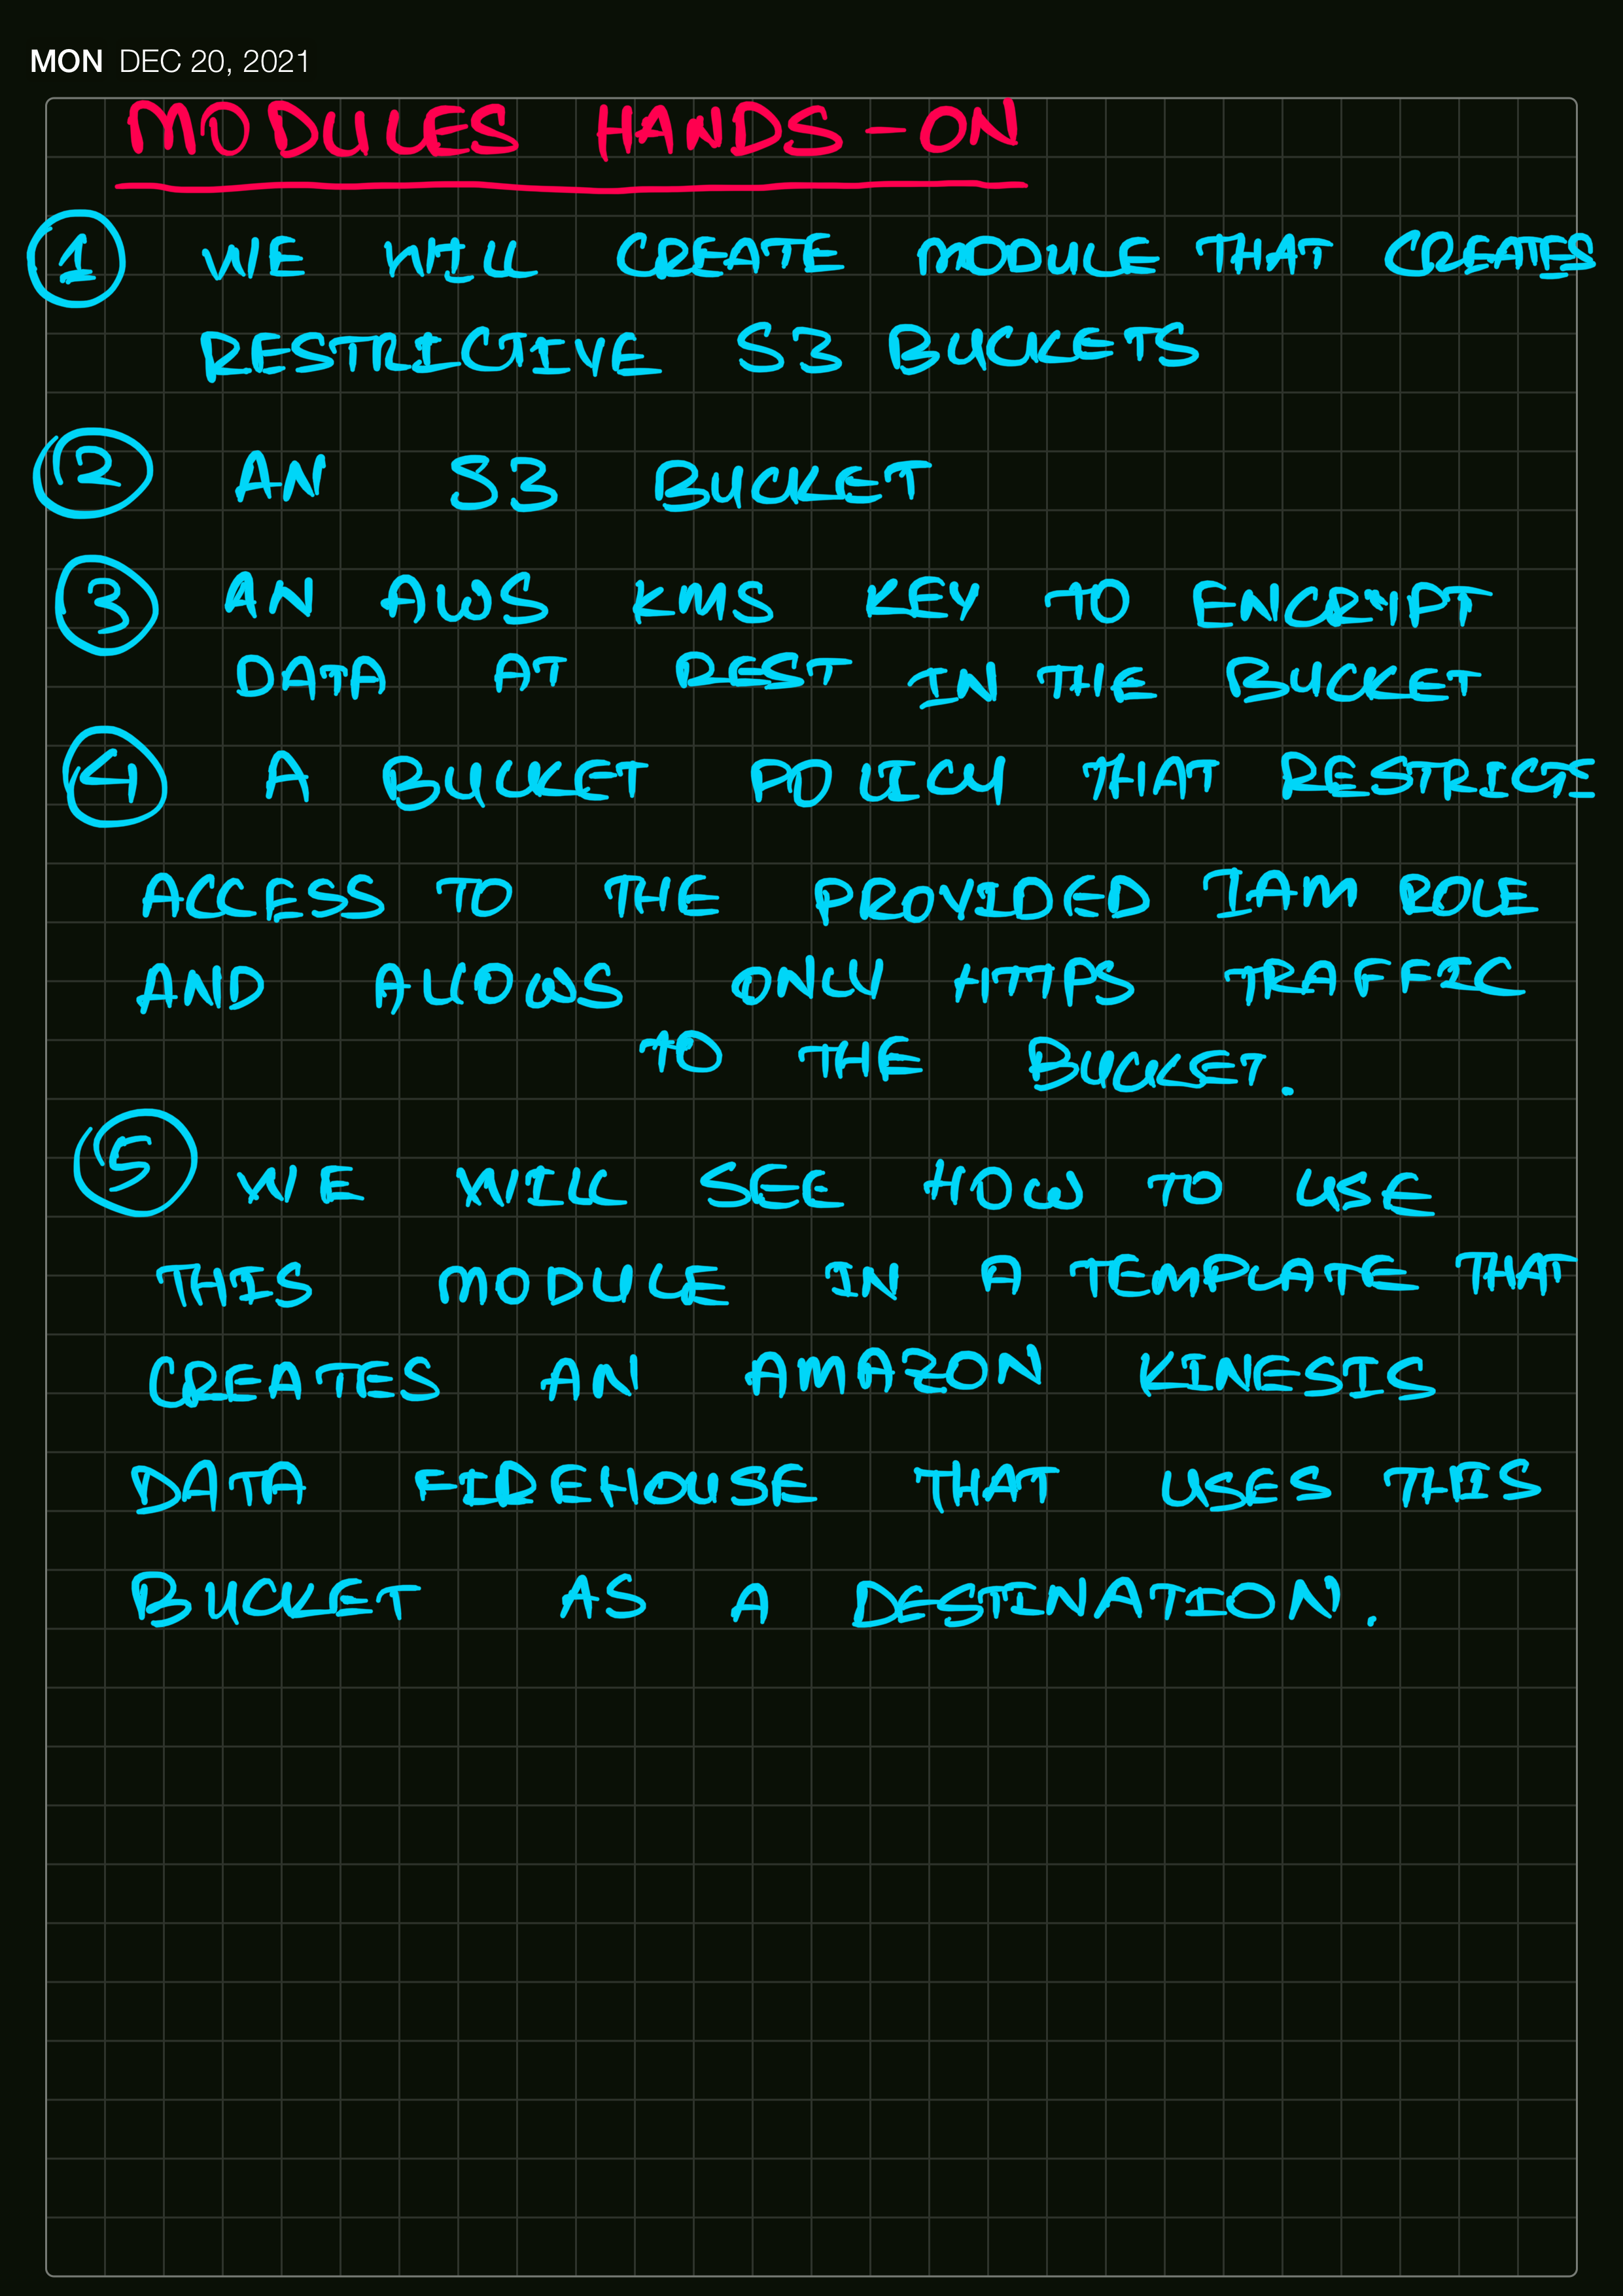 MON DEC 20, 2021
MODULES HANDS-ON
1 WE WILL CREATE MODULE THAT CREATES
RESTRICTIVE S3 BUCKETS
2 AN S3 BUCKET
3 AN AWS KMS KEY TO ENCRYPT
DATA AT REST IN THE BUCKET
4 A BUCKET POLICY THAT RESTRICTS
ACCESS TO THE PROVIDED IAM ROLE
AND ALLOWS ONLY HTTPS TRAFFIC
TO THE BUCKET.
5 WE WILL SEE HOW TO USE
THIS MODULE IN A TEMPLATE THAT
CREATES AN AMAZON KINESIS
DATA FIREHOUSE THAT USES THIS
BUCKET AS A DESTINATION.